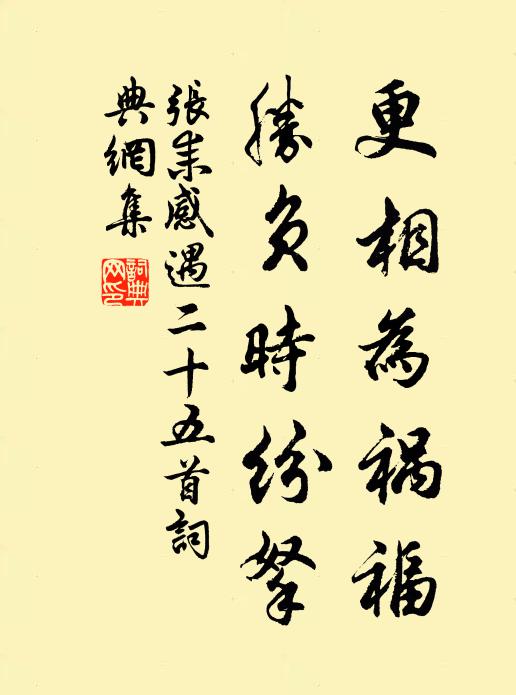 更相為禍福
勝負時紛拏
張耒感遇二十五首詞
典網集
詞典網印